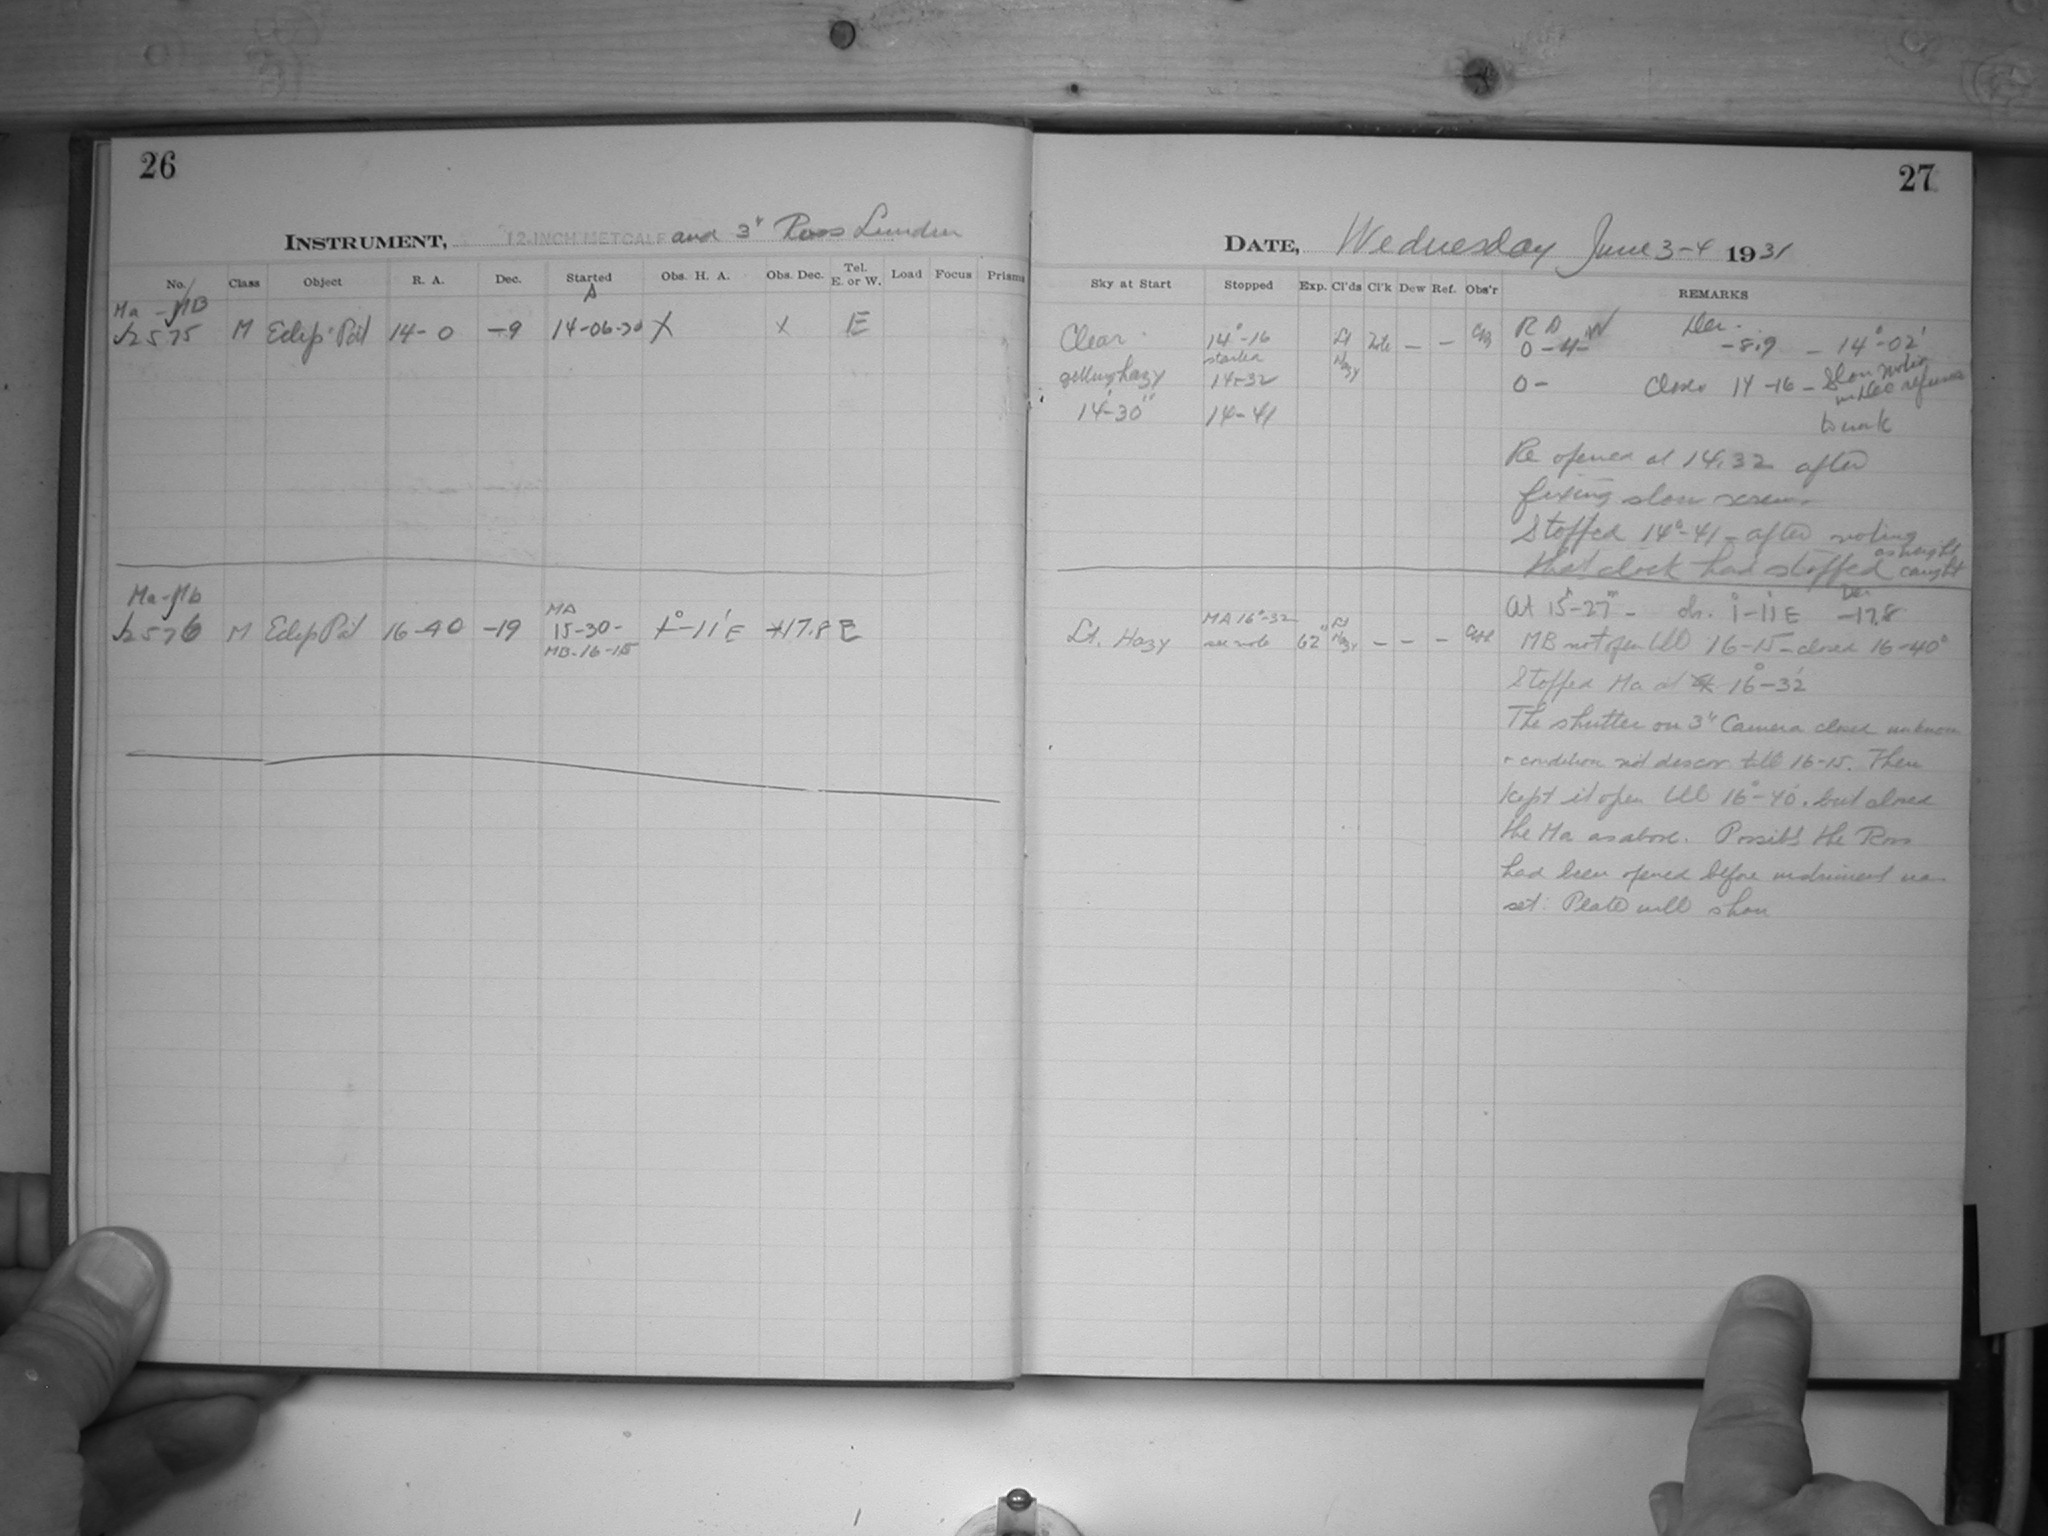 26
INSTRUMENT, 12-INCH METCALF and 3" Ross Lunden
No. Class Object R. A. Dec. Started Obs. H. A. Obs. Dec. Tel. E. or W. Load Focus Prisms
Ma - MB
2575 M Eclip. Pat 14-0 -9 14-06-30 X X E
Ma-Mb
2576 M Eclip Pat 16-40 -19 MA 15-30- 1°-11' E 17.8 E
MB-16-15
27
DATE, Wednesday June 3-4 1931
Sky at Start Stopped Exp. Cl'ds Cl'k Dew Ref. Obs'r REMARKS
Clear 14°-16 Lt Hazy Note - - 0-4- W Dec. -8.9 - 14°-02'
getting hazy started 14-32 0- Closes 14-16- Slow motion in Dec refuses
14-30 14-41 to work
Re opened at 14.32 after
fixing slow screw.
Stopped 14°-41- after noting
that clock had stopped as weight caught
At 15-27 - 1-11 E Dec -17.8
Lt. Hazy MA 16°-32 see note 62 Lt Hazy - - - MB not open till 16-15-closed 16-40
Stopped Ma at 16-32
The shutter on 3" Camera closed unknown
condition not discov. till 16-15. Then
kept it open till 16-40. but closed
the Ma as above. Possibl the Ross
had been opened before instrument was
set. Plate will show